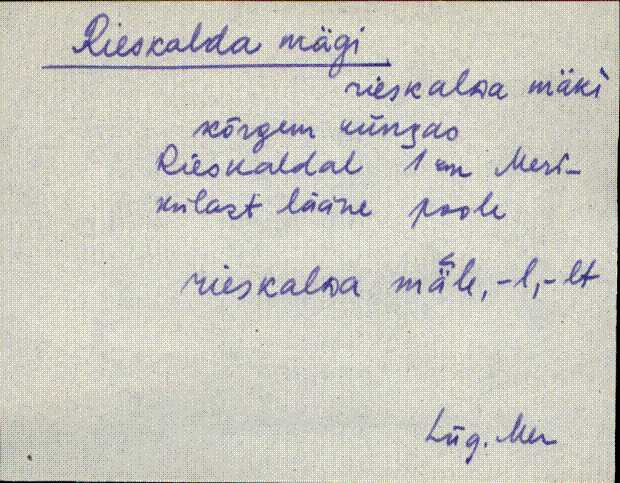 Rieskalda mägi
rieskalᴅa mäki
kõrgem küngas
Rieskaldal 1 km Meri-
külast lääne poole
rieskalᴅa mäle, -l, -lt
Lüg. Mer